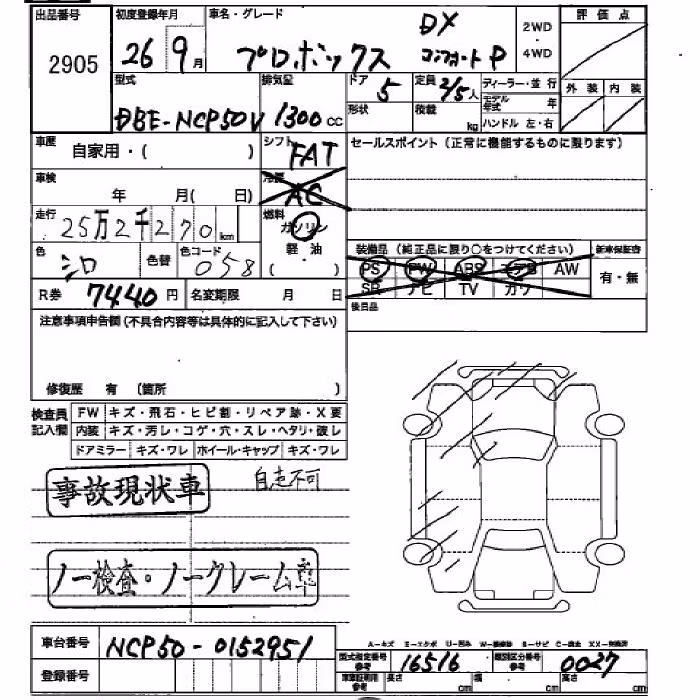 出品番号 初度登録年月 車名・グレード 評価点
2905 26年9月 プロボックス DX コンフォートP 2WD・4WD
外装 内装
型式 排気量 ドア 定員 ディーラー・並行
DBE-NCP50V 1300cc 5 2/5人 モデル年式 年
形状 積載 kg ハンドル 左・右
車歴 自家用・( ) シフト FAT セールスポイント(正常に機能するものに限ります)
車検 年 月( 日) 冷房 AC
走行 25万2千270km 燃料 ガソリン 軽油 ( )
色 シロ 色替 色コード 058
装備品(純正品に限り○をつけてください) 新車保証書
PS PW ABS エアB AW 有・無
SR ナビ TV カワ
R券 7440円 名変期限 月 日 後日品
注意事項申告欄(不具合内容等は具体的に記入して下さい)
修復歴 有 (箇所 )
検査員記入欄 FW キズ・飛石・ヒビ割・リペア跡・X要
内装 キズ・汚レ・コゲ・穴・スレ・ヘタリ・破レ
ドアミラー キズ・ワレ ホイール・キャップ キズ・ワレ
自走不可
事故現状車
ノー検査・ノークレーム車
車台番号 NCP50-0152951
型式指定番号 参考 16516 類別区分番号 参考 0027
登録番号 参考 長さ cm 幅 cm 高さ cm